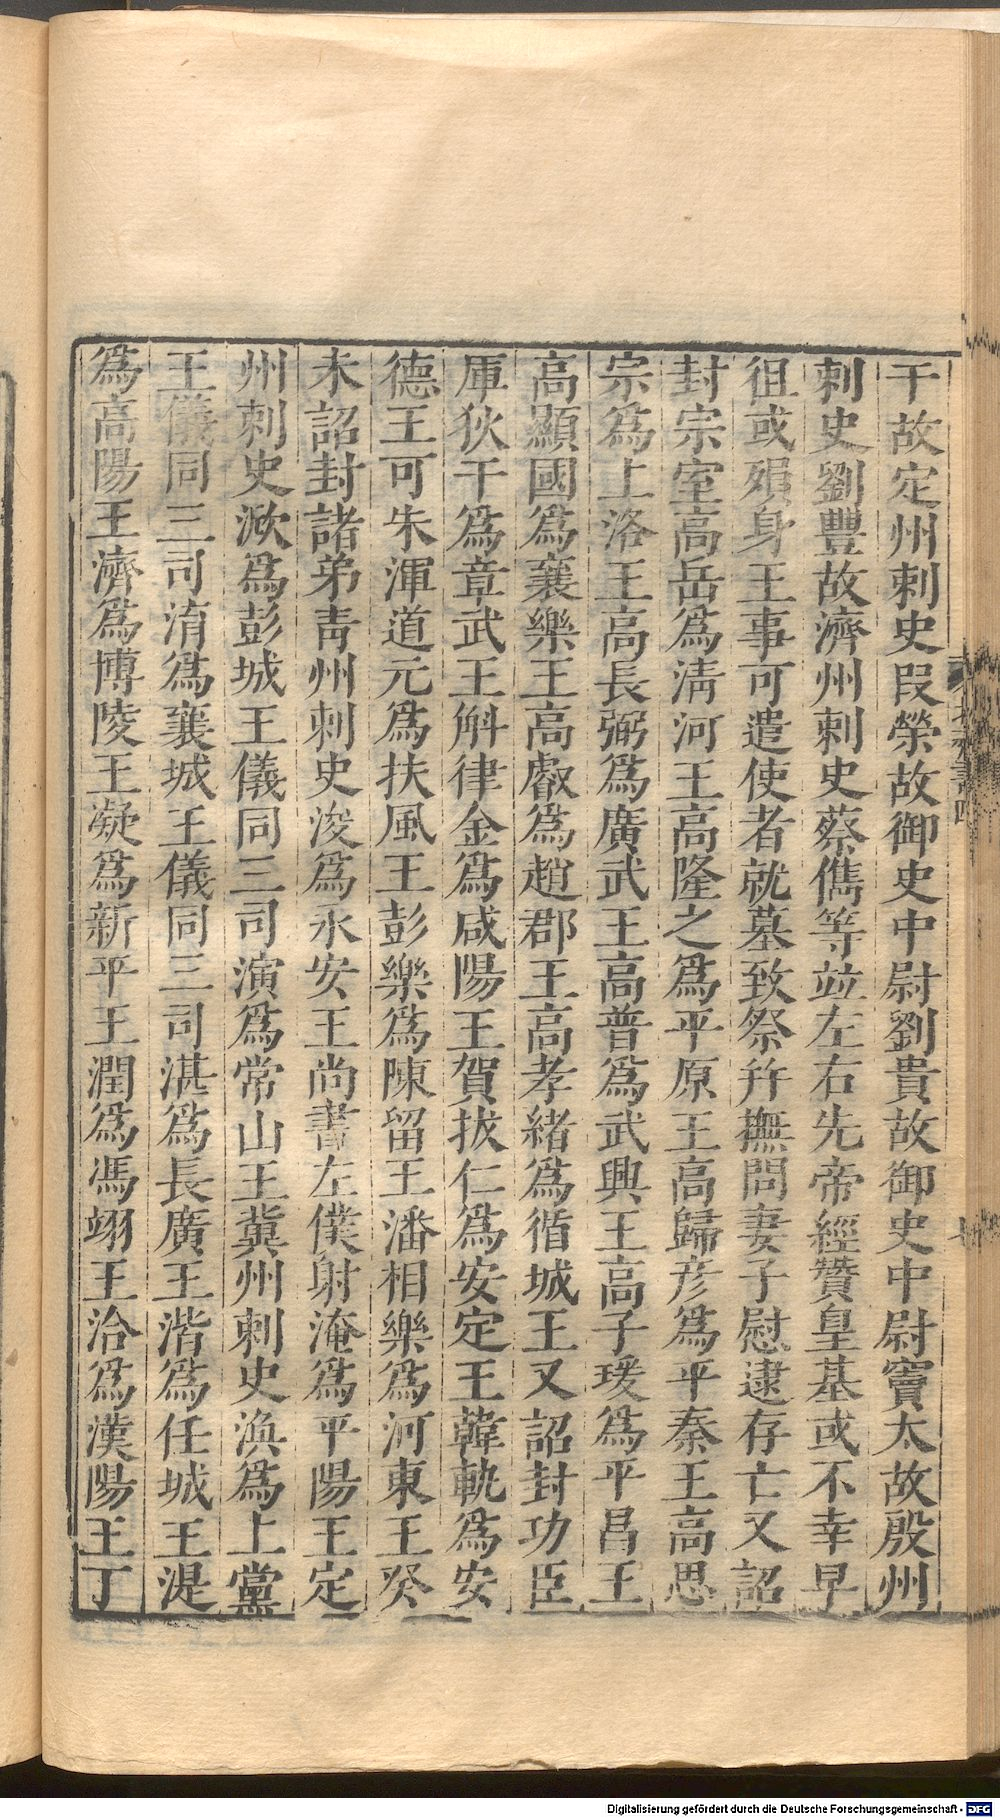 干故定州刺史段榮故御史中尉劉貴故御史中尉竇太故殷州
刺史劉豐故濟州刺史蔡儁等竝左右先帝經贊皇基或不幸早
徂或殞身王事可遣使者就墓致祭幷撫問妻子慰逮存亡又詔
封宗室高岳爲清河王高隆之爲平原王高歸彥爲平秦王高思
宗爲上洛王高長弼爲廣武王高普爲武興王高子瑗爲平昌王
高顯國爲襄樂王高叡爲趙郡王高孝緒爲循城王又詔封功臣
厙狄干爲章武王斛律金爲咸陽王賀拔仁爲安定王韓軌爲安
德王可朱渾道元爲扶風王彭樂爲陳留王潘相樂爲河東王癸
未詔封諸弟青州刺史浚爲永安王尚書左僕射淹爲平陽王定
州刺史浟爲彭城王儀同三司演爲常山王冀州刺史渙爲上黨
王儀同三司淯爲襄城王儀同三司湛爲長廣王湝爲任城王湜
爲高陽王濟爲博陵王凝爲新平王潤爲馮翊王洽爲漢陽王丁
Digitalisierung gefördert durch die Deutsche Forschungsgemeinschaft - DFG